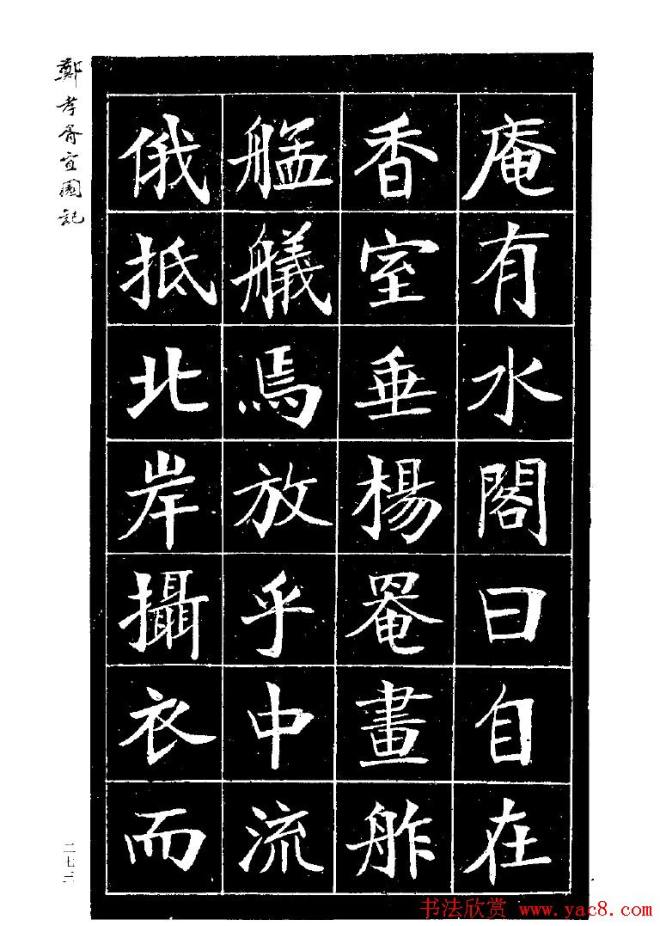 鄭孝胥宜園記
庵有水閣曰自在
香室垂楊罨畫舴
艋艤焉放乎中流
俄抵北岸攝衣而
二七二
书法欣赏 www.yac8.com